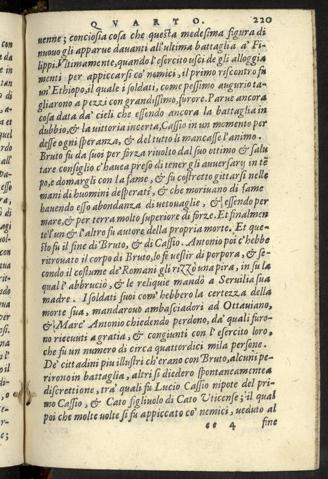 QVARTO. 220
uenne; conciosia cosa che questa medesima figura di
nuouo gli apparue dauanti all'ultima battaglia a' Fi-
lippi. Vltimamente, quando l'esercito usci de gli alloggia
menti per appiccarsi co' nemici, il primo riscontro fu
un'Ethiopo, il quale i soldati, come pessimo augurio ta-
gliarono a pezzi con grandissimo furore. Parue ancora
cosa data da' cieli che essendo ancora la battaglia in
dubbio, & la uittoria incerta, Cassio in un momento per
desse ogni speranza, & del tutto li mancasse l'animo.
Bruto fu da' suoi per forza riuolto dal suo ottimo & salu
tare consiglio c'hauea preso di tener gli auuersarij in tē
po, e domargli con la fame, & fu costretto gittarsi nelle
mani di huomini desperati, & che moriuano di fame
hauendo esso abondanza di uetouaglie, & essendo per
mare, & per terra molto superiore di forze. Et finalmen
te l'un & l'altro fu autore della propria morte. Et que-
sto fu il fine di Bruto, & di Cassio. Antonio poi c'hebbe
ritrouato il corpo di Bruto, lo fè uestir di porpora, & se-
condo il costume de' Romani gli rizzò una pira, in su la
qual l'abbruciò, & le reliquie mandò a Seruilia sua
madre. I soldati suoi com' hebbero la certezza della
morte sua, mandarouo ambasciadori ad Ottauiano,
& Marc' Antonio chiedendo perdono, da' quali furo-
no riceuuti a gratia, & congiunti con l'esercito loro,
che fu un numero di circa quattordici mila persone.
De' cittadini piu illustri ch'erano con Bruto, alcuni pe-
rirono in battaglia, altri si diedero spontaneamente a
discrettione, tra' quali fu Lucio Cassio nipote del pri-
mo Cassio, & Cato figliuolo di Cato Vticense; il qual
poi che molte uolte si fu appiccato co' nemici, ueduto al
ee 4 fine